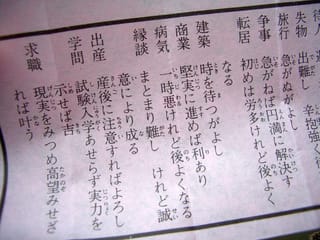 失物 出難し
旅行 急がぬがよし
争事 急がねば円満に解決す
転居 初めは労多けれど後よく
なる
建築 時を待つがよし
商業 堅実に進めば利あり
病気 一時悪けれど後よくなる
縁談 まとまり難し けれど誠
意により成る
出産 産後に注意すればよろし
学問 試験入学あせらず実力を
示せば吉
求職 現実をみつめ高望みせざ
れば叶う